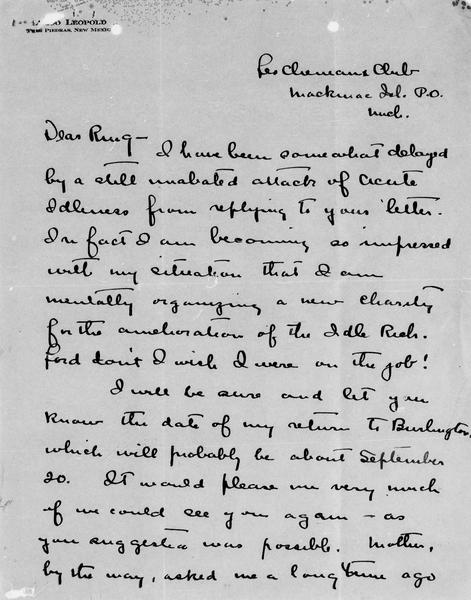 Leopold
Tres Piedras, New Mexico
Les Cheneaux Club
Mackinac Isl. P.O.
Mich.
Dear Ring —
I have been somewhat delayed
by a still unabated attack of Acute
Idleness from replying to your letter.
In fact I am becoming so impressed
with my situation that I am
mentally organizing a new charity
for the amelioration of the Idle Rich.
Lord don't I wish I were on the job!
I will be sure and let you
know the date of my return to Burlington,
which will probably be about September
20. It would please me very much
if we could see you again – as
you suggested was possible. Mother,
by the way, asked me a long time ago